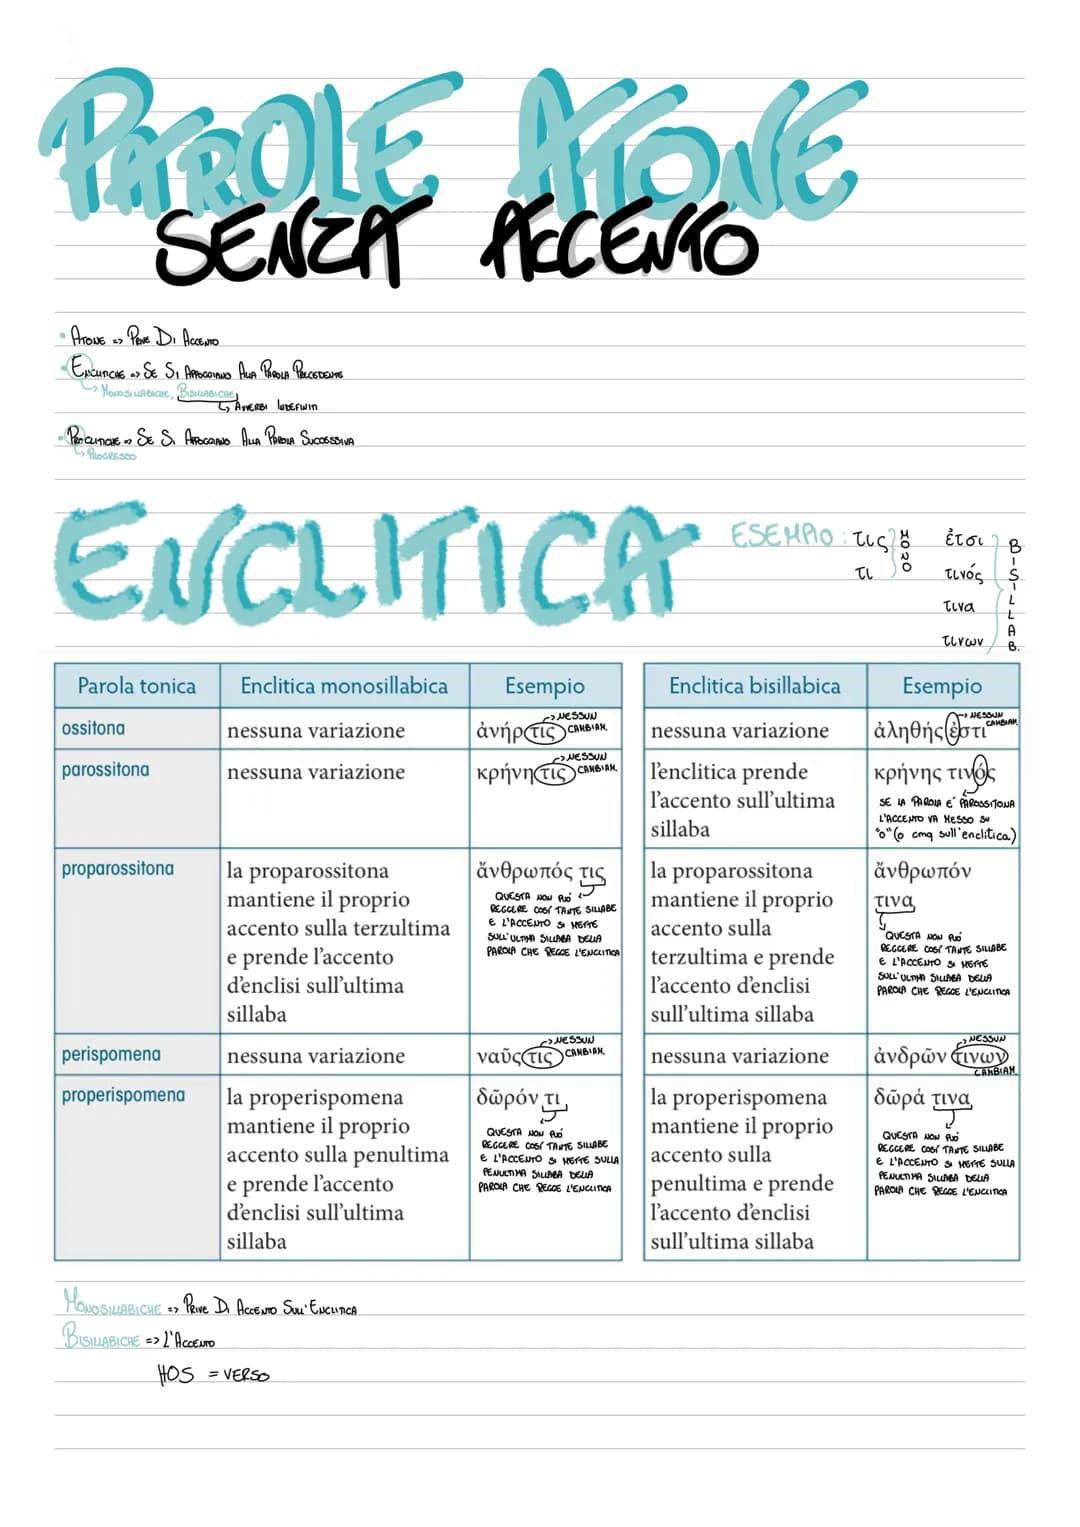 PAROLE ATONE
SENZA ACCENTO
• ATONE => PRIVE DI ACCENTO
• ENCLITICHE => SE SI APPOGGIANO ALLA PAROLA PRECEDENTE
↳ MONOSILLABICHE, BISILLABICHE
↳ AVVERBI INDEFINITI
• PROCLITICHE => SE SI APPOGGIANO ALLA PAROLA SUCCESSIVA
↳ PROGRESSO
ENCLITICA
ESEMPIO: τις
τι
MONO
ἐτσι
τινός
τινα
τινων
BISILLAB.
Parola tonica Enclitica monosillabica Esempio
ossitona nessuna variazione ἀνήρ τις → NESSUN CAMBIAM.
parossitona nessuna variazione κρήνη τις → NESSUN CAMBIAM.
proparossitona la proparossitona ἄνθρωπός τις
mantiene il proprio
accento sulla terzultima
e prende l'accento
d'enclisi sull'ultima
sillaba
QUESTA NON PUÓ
REGGERE COSÍ TANTE SILLABE
E L'ACCENTO SI METTE
SULL'ULTIMA SILLABA DELLA
PAROLA CHE REGGE L'ENCLITICA
perispomena nessuna variazione ναῦς τις → NESSUN CAMBIAM.
properispomena la properispomena δῶρόν τι
mantiene il proprio
accento sulla penultima
e prende l'accento
d'enclisi sull'ultima
sillaba
QUESTA NON PUÓ
REGGERE COSÍ TANTE SILLABE
E L'ACCENTO SI METTE SULLA
PENULTIMA SILLABA DELLA
PAROLA CHE REGGE L'ENCLITICA
Enclitica bisillabica Esempio
nessuna variazione ἀληθής ἐστι → NESSUN CAMBIAM.
l'enclitica prende κρήνης τινός
l'accento sull'ultima
sillaba
SE LA PAROLA E' PAROSSITONA
L'ACCENTO VA MESSO SU
"o" (o cmq sull'enclitica)
la proparossitona ἄνθρωπόν
mantiene il proprio τινα
accento sulla
terzultima e prende
l'accento d'enclisi
sull'ultima sillaba
QUESTA NON PUÓ
REGGERE COSÍ TANTE SILLABE
E L'ACCENTO SI METTE
SULL'ULTIMA SILLABA DELLA
PAROLA CHE REGGE L'ENCLITICA
nessuna variazione ἀνδρῶν τινων → NESSUN CAMBIAM.
la properispomena δῶρά τινα
mantiene il proprio
accento sulla
penultima e prende
l'accento d'enclisi
sull'ultima sillaba
QUESTA NON PUÓ
REGGERE COSÍ TANTE SILLABE
E L'ACCENTO SI METTE SULLA
PENULTIMA SILLABA DELLA
PAROLA CHE REGGE L'ENCLITICA
MONOSILLABICHE => PRIVE DI ACCENTO SULL'ENCLITICA
BISILLABICHE => L'ACCENTO
HOS = VERSO